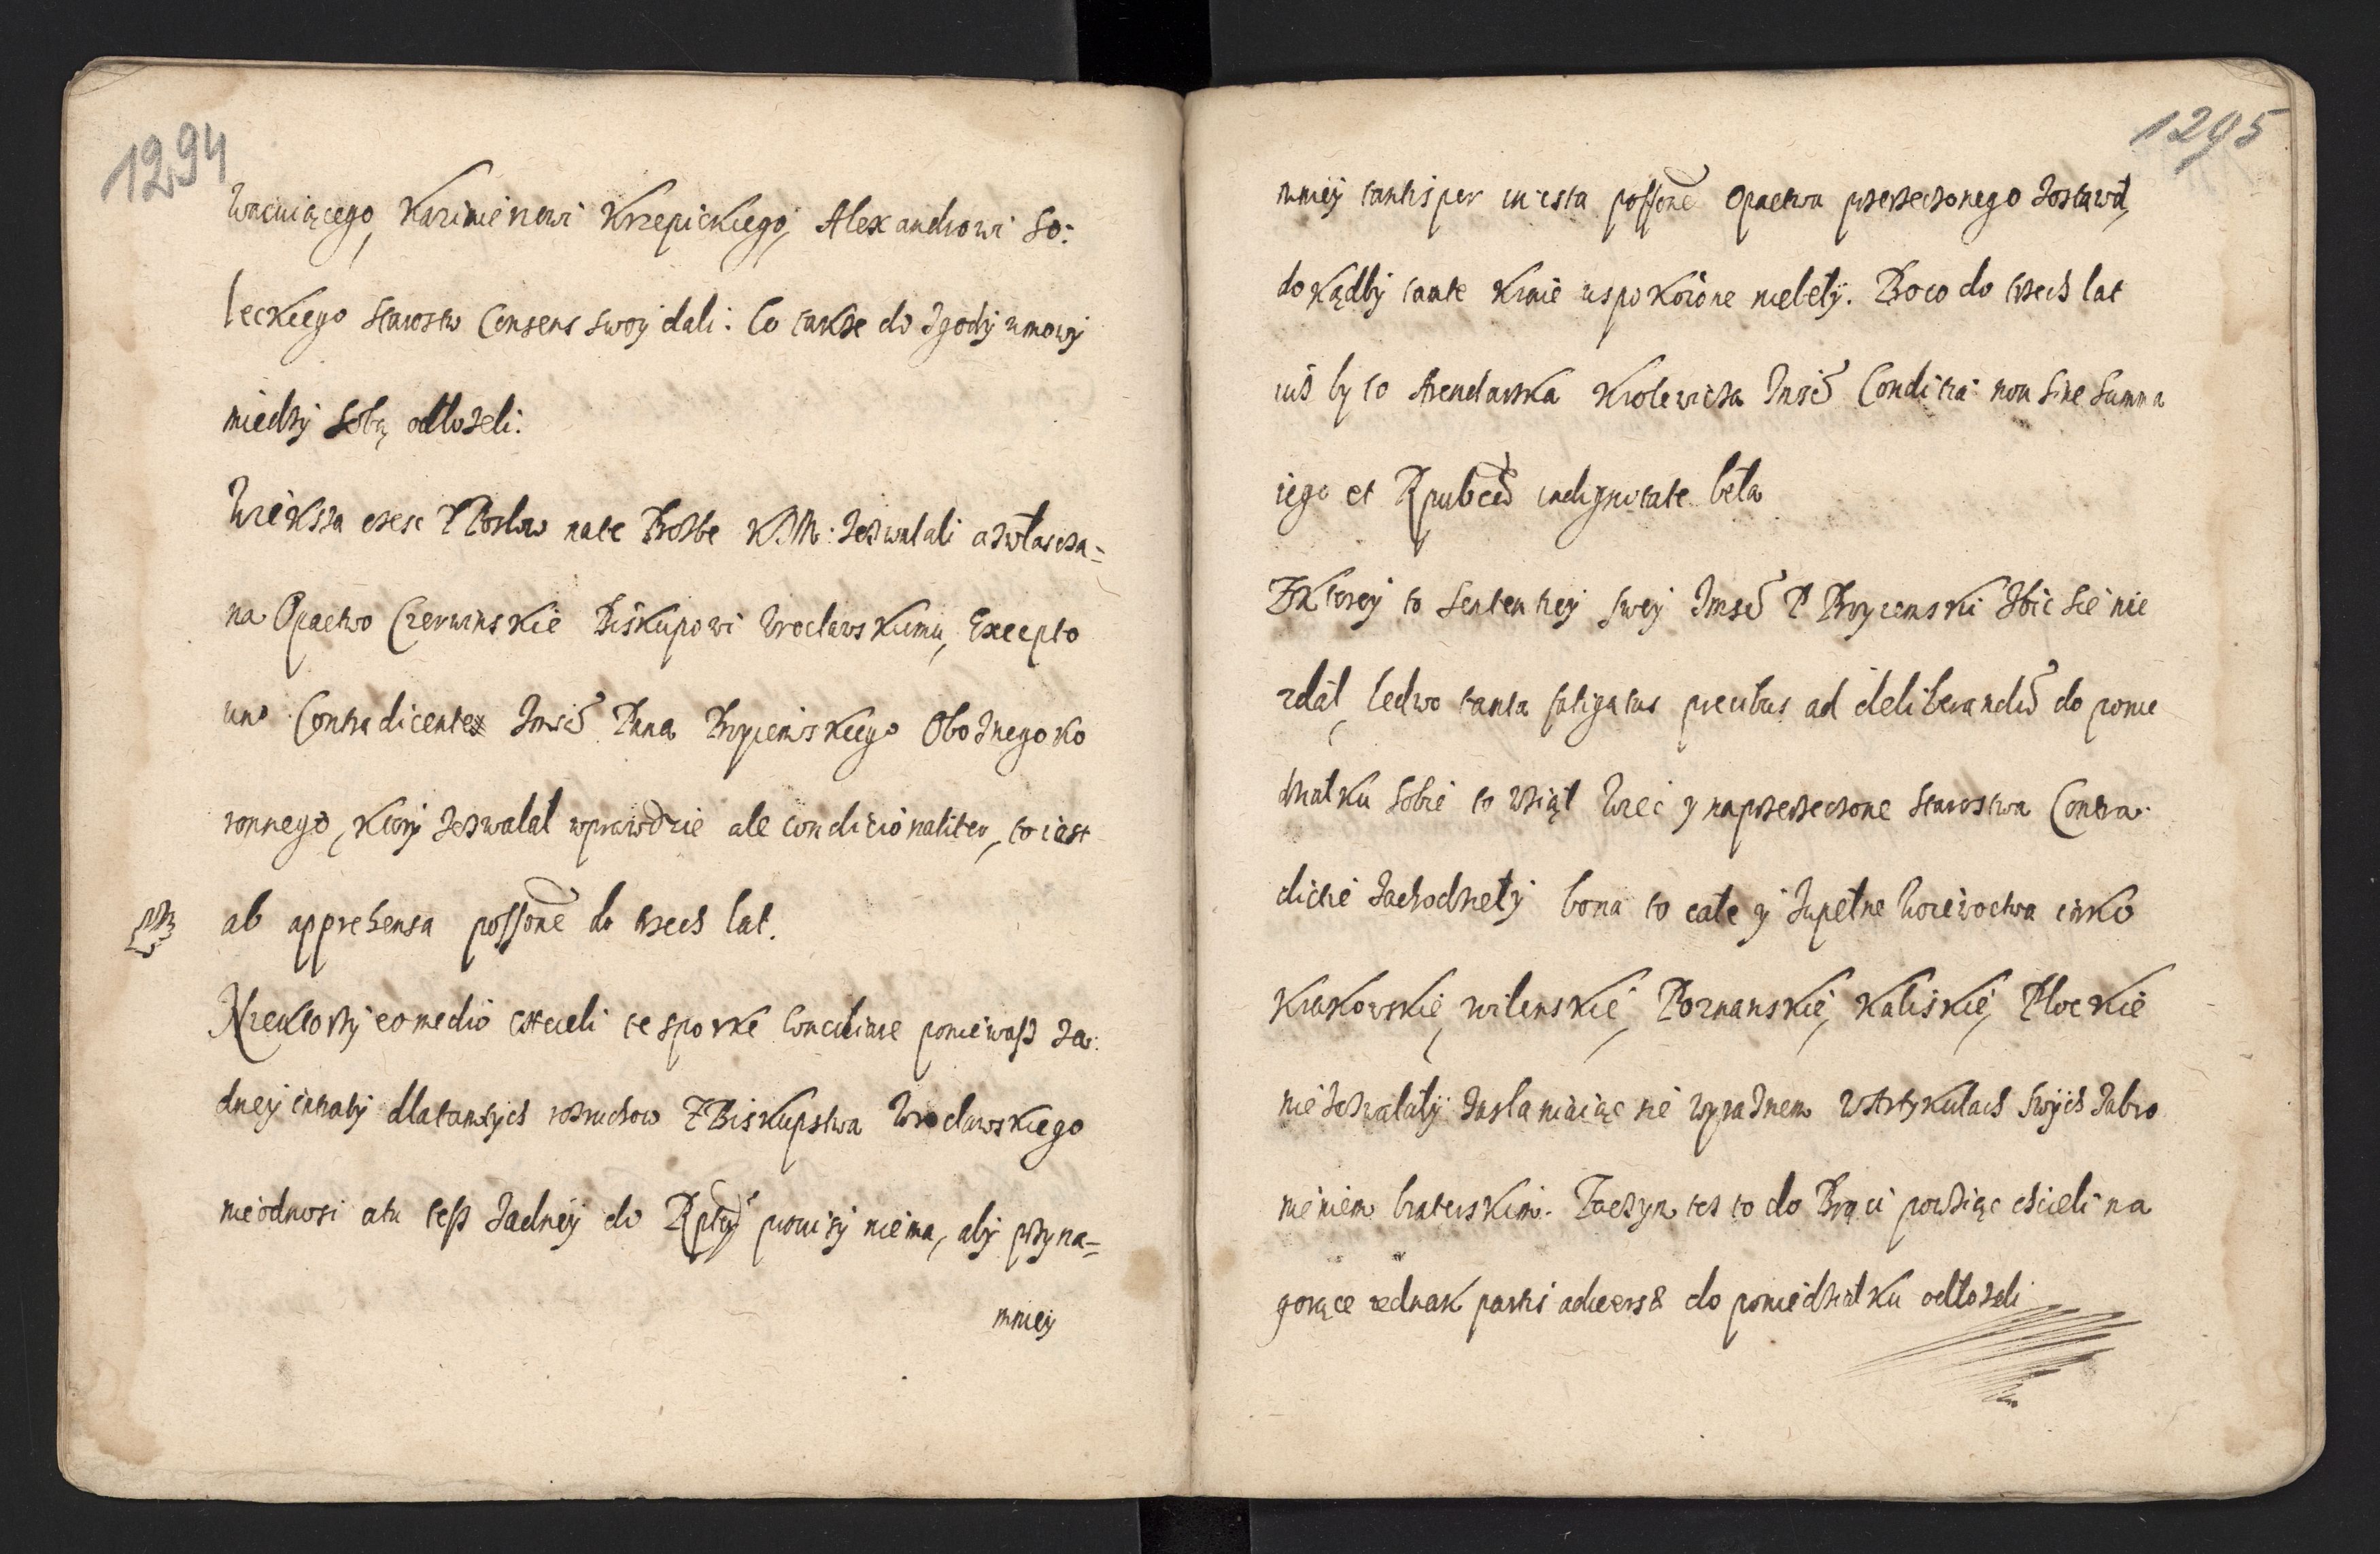 1294
Kazimierzowi Krzepickiego, Alexandrowi So:
leckiego Starostw Consens swoy dali: Co także do Zgody umowy
między sobą odłożeli:
Większa część PPosłow na te Prośbe KJM: Zezwalali a zwłascza=
na Opactwo Czerwinskie Biskupowi Wrocławskiemu, Excepto
uno Contradicente Jmśći Pana Przyiemskiego Oboznego ko
ronnego, ktory Zezwalał wprawdzie ale conditionaliter, to iest
ab apprehensa possone do trzech lat.
Niektorzy eo medio chcieli te sporke Conciliare poniewasz Za:
dney intraty dla tamtych rozruchow Z Biskupstwa Wrocławskiego
nieodnosi a tu tesz Zadney do Rptey prowizy niema, aby przyna=
mniey
1295
mniey tantisper in ista possone Opactwa przerzeczonego Zostawał,
dokądby tamte kraie uspokoione niebeły. Bo co do trzech lat
iusz by to Arendarska Krolewicza Jmśći Conditia non sine Summa
iego et Rpubcae indignitate beła
Z Ktorey to Sententiey swey Jmść P Przyiemski Zbić sie nie
zdał, ledwo tanta fatigatus precibus ad deliberandum do ponie
działku sobie to wziął Więc y na przerzeczone Starostwa Contra:
dictie Zachodzieły bo na to całe y Zupełne Woiewoctwa iako
Krakowskie, Wilenskie, Poznanskie, Kaliskie, Płockie
nie Zezwalały Zaslaniaiąc sie wyraznem W Artykułach swych Zabro
nieniem braterskim. Zaczym tesz to do Braci powziąc chcieli na
gorące iednak partis adversae do poniedziałku odłożeli